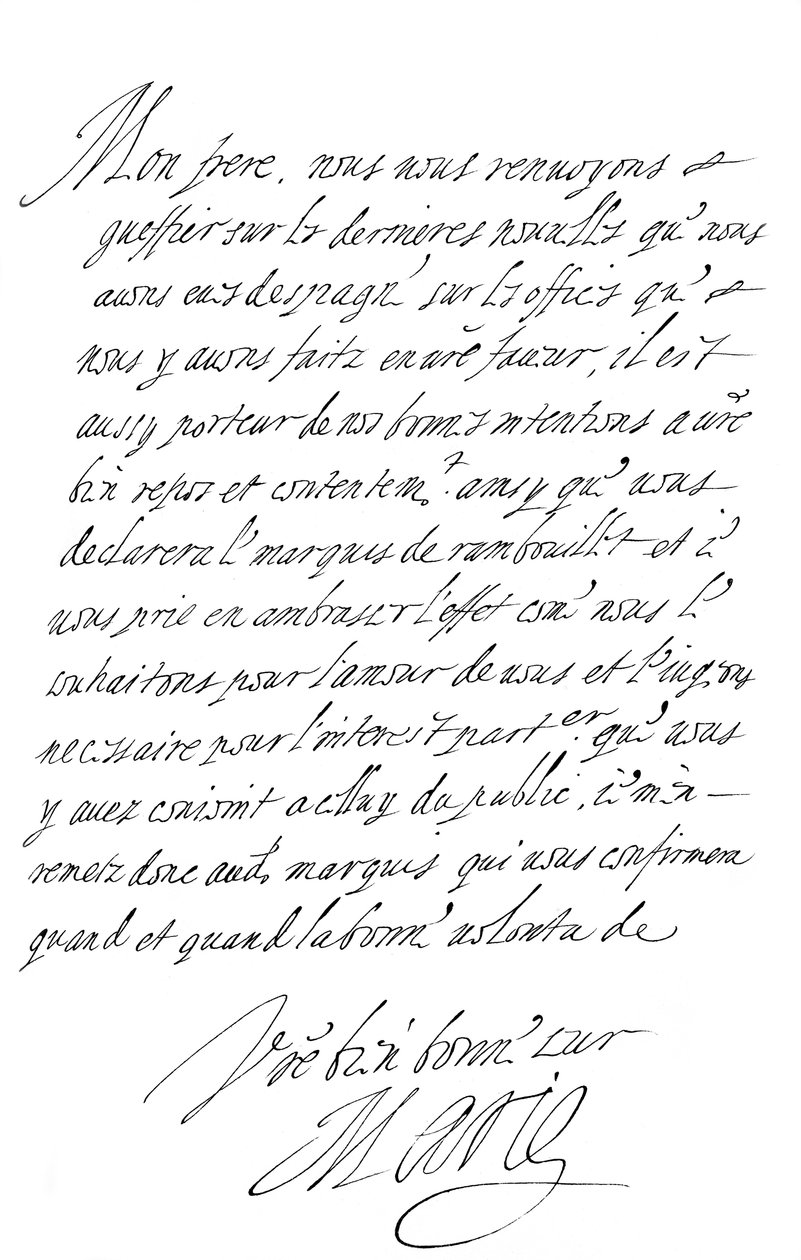 Mon frere, nous vous renuoyons
gueffier sur les dernieres nouuelles que nous
auons eues despagne sur les offices que
nous y auons faitz en vre faueur, il est
aussy porteur de nos bonnes intentions a vre
bien repos et contentemt. ainsy que vous
declarera le marquis de rambouillet et ie
vous prie en ambraser l'effet come nous le
souhaitons pour l'amour de vous et le iugeons
necessaire pour l'interest parter. que vous
y auez conioint a celluy du public, ie m'en
remetz donc aud. marquis qui vous confirmera
quand et quand la bonne volonta de
Vre bien bonne seur
Marie